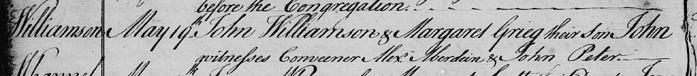 before the Congregation.
Williamson May 19th John Williamson & Margaret Grieg their Son John
witnesses Conveener Alexr Aberdein & John Peter